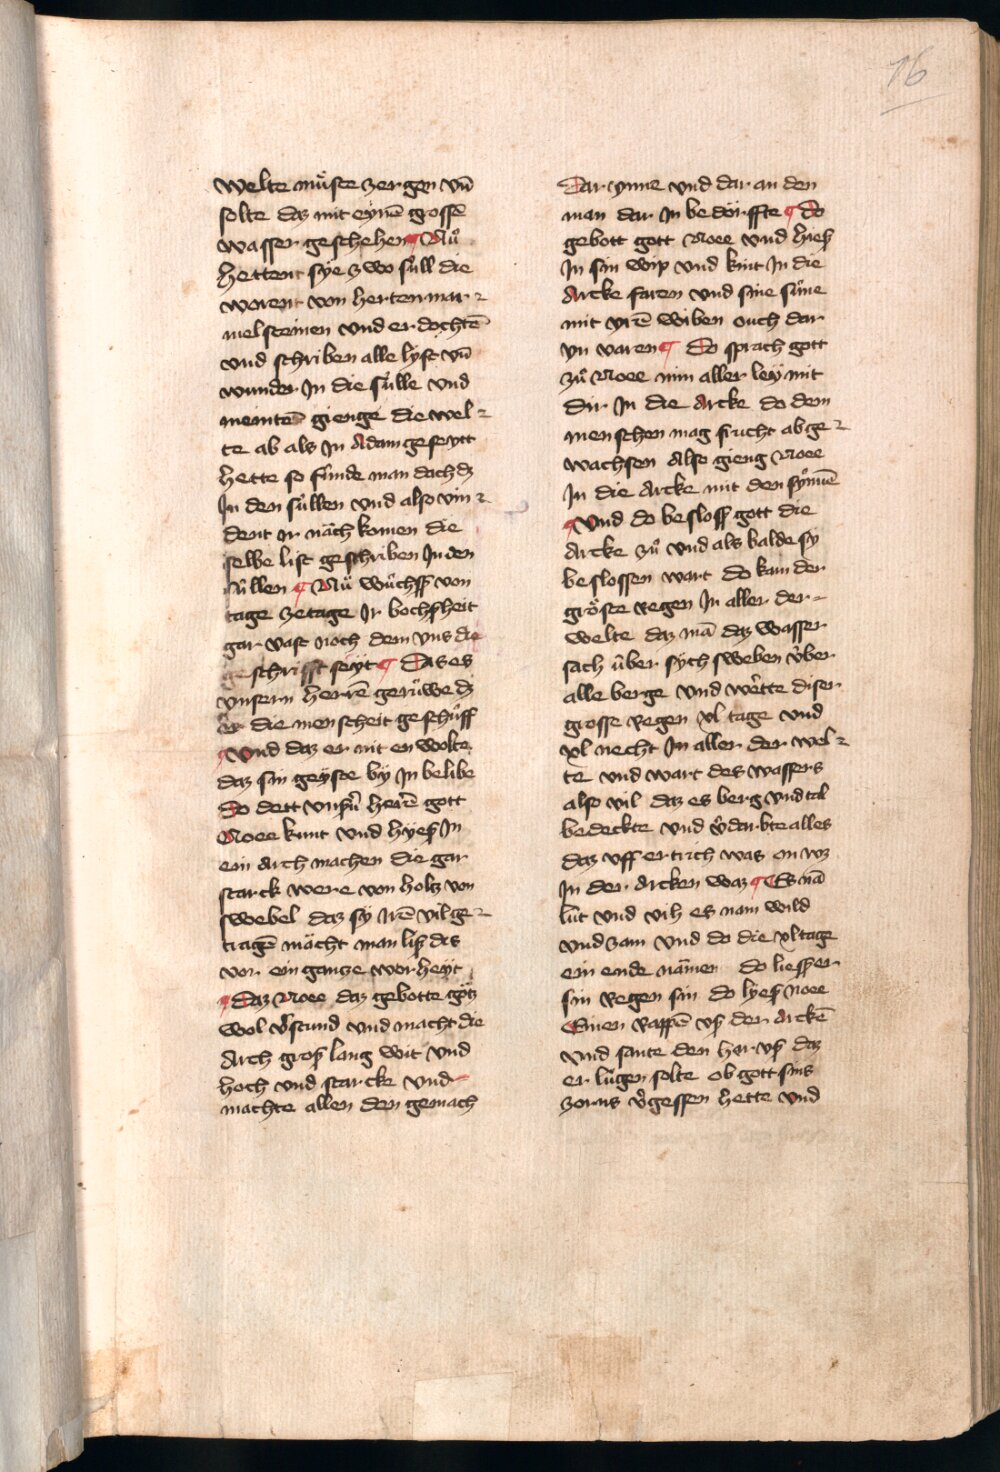 16
welte muͤste zergen vn̄
solte daz mit eynē grossē
wasser geschehen ¶ Nuͦ
hettent sye zwo suͤll die
worent von herten mar⸗
melsteinen vnd erdochtē
vnd schriben alle lyst vn̄
wunder In die suͤlle vnd
meintē gienge die wel⸗
te ab als In Adam geseytt
hette so fùnde man doch dz
In den suͤllen vnd also vin⸗
dent ir nǎch komen die
selbe list geschriben In den
suͤllen ¶ Nuͦ wuͦchss von
tage zetage Ir bochsheit
gar vast noch dem vns die
geschrifft seyt ¶ Das es
vnsern herrē gerùwe dz
er die menscheit geschùff
¶ Vnd daz er nit en wolte
daz sin geyste by In belibe
Do dett vnsn̄ herrē gott
Noee kunt vnd hyeß In
ein Arch machen die gar
starck were von holtz von
swebel daz sy irē vil ge⸗
tragē mǒcht man liß dis
vor ein gantze worheyt
¶ Daz Noee daz gebotte gotz
wol v̓stund vnd macht die
Arch groß lang wit vnd
hoch vnd starcke vnd
machte allen den gemach
Dar ynne vnd dar an den
man dar In bedoͤrffte ¶ Do
gebott gott Noee vnd hieß
In sin wip vnd kint In die
Arcke faren vnd sine suͤne
mit irē wiben ouch dar
yn varen ¶ Do sprach gott
zuͦ Noee nim aller ley mit
dir In die Arcke do dem
menschen mag frucht abge⸗
wachsen Also gieng Noee
In die Arcke mit den synnē
¶ Vnd do besloss gott die
Arcke zuͦ vnd als balde sy
beslossen wart do kam der
groͤste regen In aller der
welte daz mā daz wasser
sach ùber sych sweben v̓ber
alle berge vnd werte diser
grosse regen xl tage vnd
xl necht In aller der wel⸗
te vnd wart des wassers
also vil daz es berg vnd tal
bedeckte vnd v̓darbte alles
daz vff ertrich was on wz
In der Arcken waz ¶ Es nā
lùt vnd vih es nam wild
vnd zam vnd do die xl tage
ein ende nǎmen do liesß er
sin regen sin do lyeß noee
Einen rappē vß der Arckē
vnd sante den har vß daz
er lùgen solte ob gott sins
zorns v̓gessen hette vnd